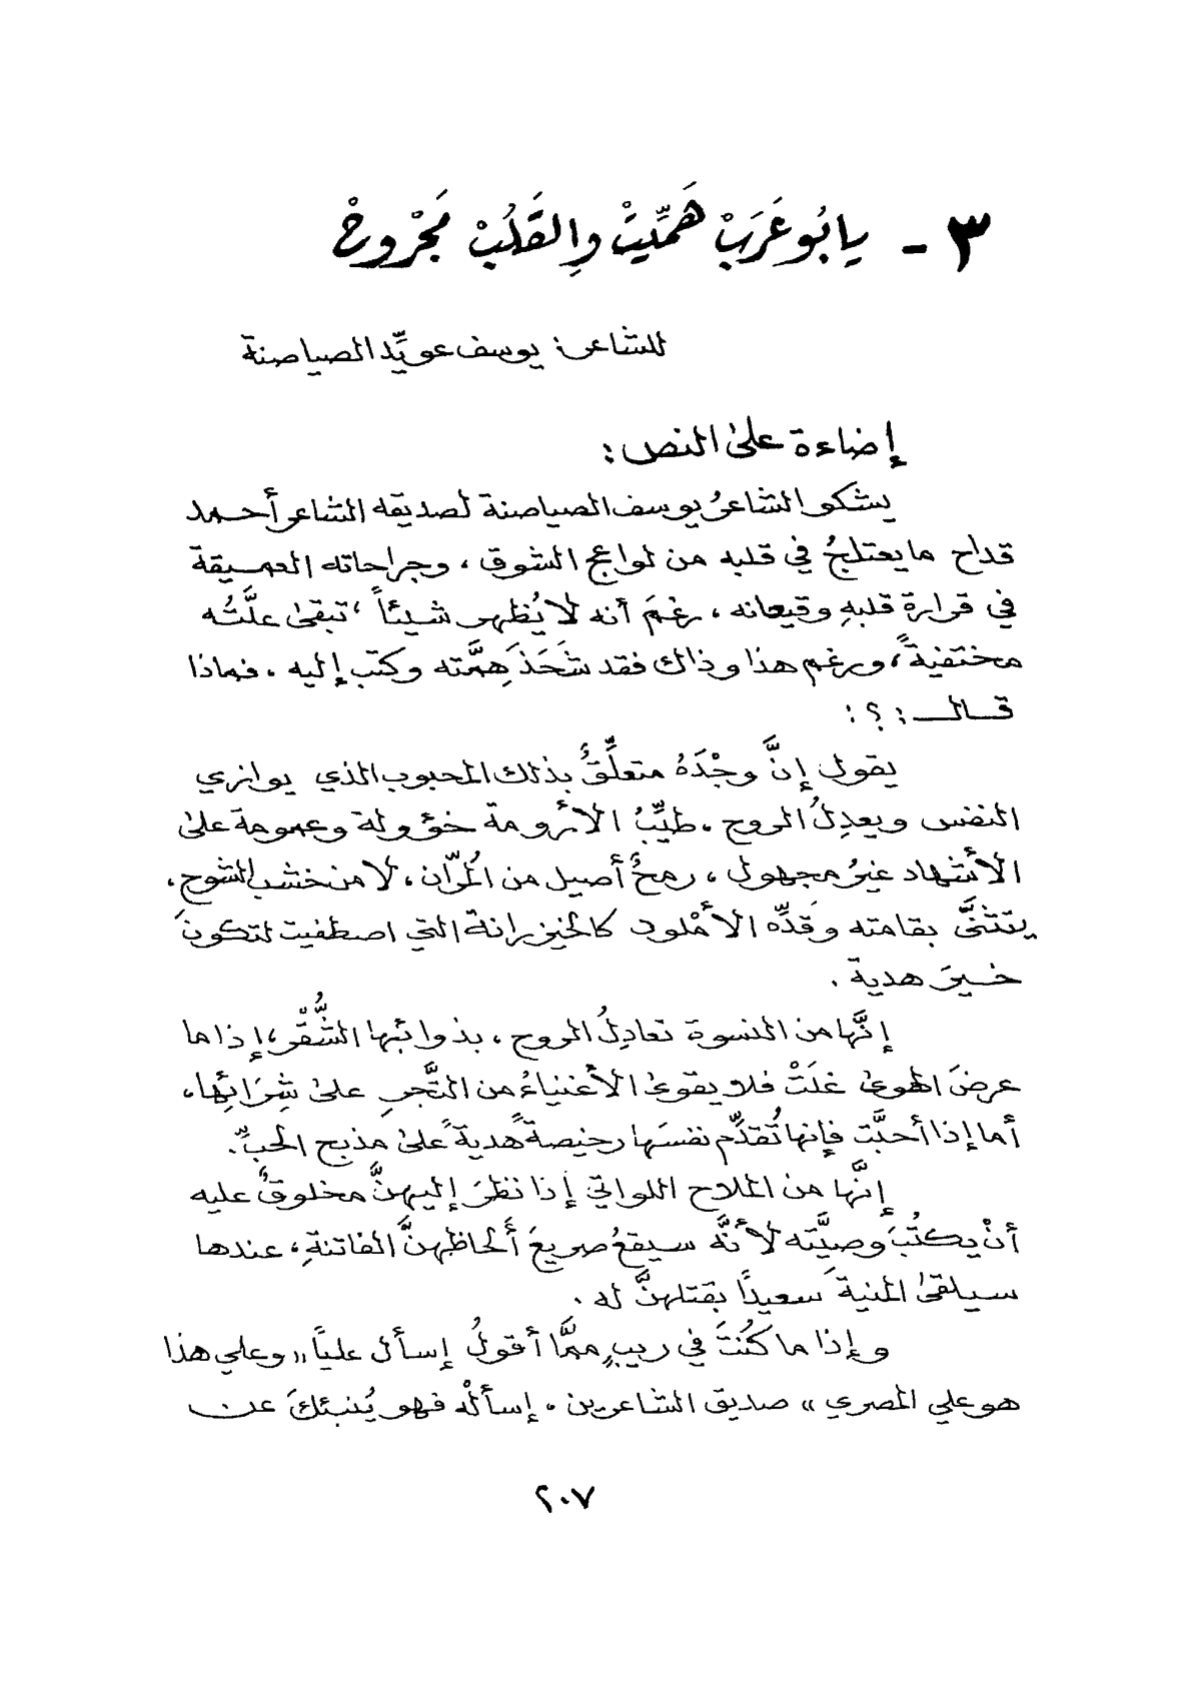 ٣ - يا بُو عَرَبْ هَمِّيتْ وِالقَلُبْ مَجْروحْ
للشاعر: يوسف عويِّد الصياصنة
إضاءة على النص:
يشكو الشاعرُ يوسف الصياصنة لصديقه الشاعر أحمد
قداح ما يعتلجُ في قلبه من لواعج الشوق، وجراحاته العميقة
في قرارةِ قلبهِ وقيعانه، رغمَ أنه لا يُظهر شيئاً، تبقى علَّتُه
مختفيةً، ورغم هذا وذاك فقد شَحَذَ هِمَّته وكتب إليه، فماذا
قال:؟:
يقول إنَّ وجْدَهُ متعلِّقٌ بذلك المحبوب الذي يوازي
النفس ويعدِلُ الروح، طيِّبُ الأرومة خؤولة وعمومة على
الأشهاد غيرُ مجهول، رمحٌ أصيل من المُرّان، لا من خشب الشوح،
يتثنَّى بقامته وقَدِّه الأمْلود كالخيزرانة التي اصطفيت لتكونَ
خيرَ هدية.
إنَّها من النسوة تعادِلُ الروح، بذوائبها الشُّقْر، إذا ما
عرضَ الهوى غلَتْ فلا يقوى الأغنياءُ من التَّجرِ على شِرَائِها،
أما إذا أحبَّت فإنها تُقدِّم نفسَها رخيصةً هديةً على مذبح الحبِّ.
إنَّها من الملاح اللواتي إذا نظرَ إليهنَّ مخلوقٌ عليه
أنْ يكتُبَ وصيَّته لأنَّه سيقعُ صريعَ أَلحاظهنَّ الفاتنةِ، عندها
سيلقى المنيةَ سعيداً بقتلهنَّ له.
وإذا ما كُنتَ في ريبٍ ممَّا أقولُ إسأل علياً «وعلي هذا
هو علي المصري» صديق الشاعرين، إسألْه فهو يُنبئكَ عن
٢٠٧